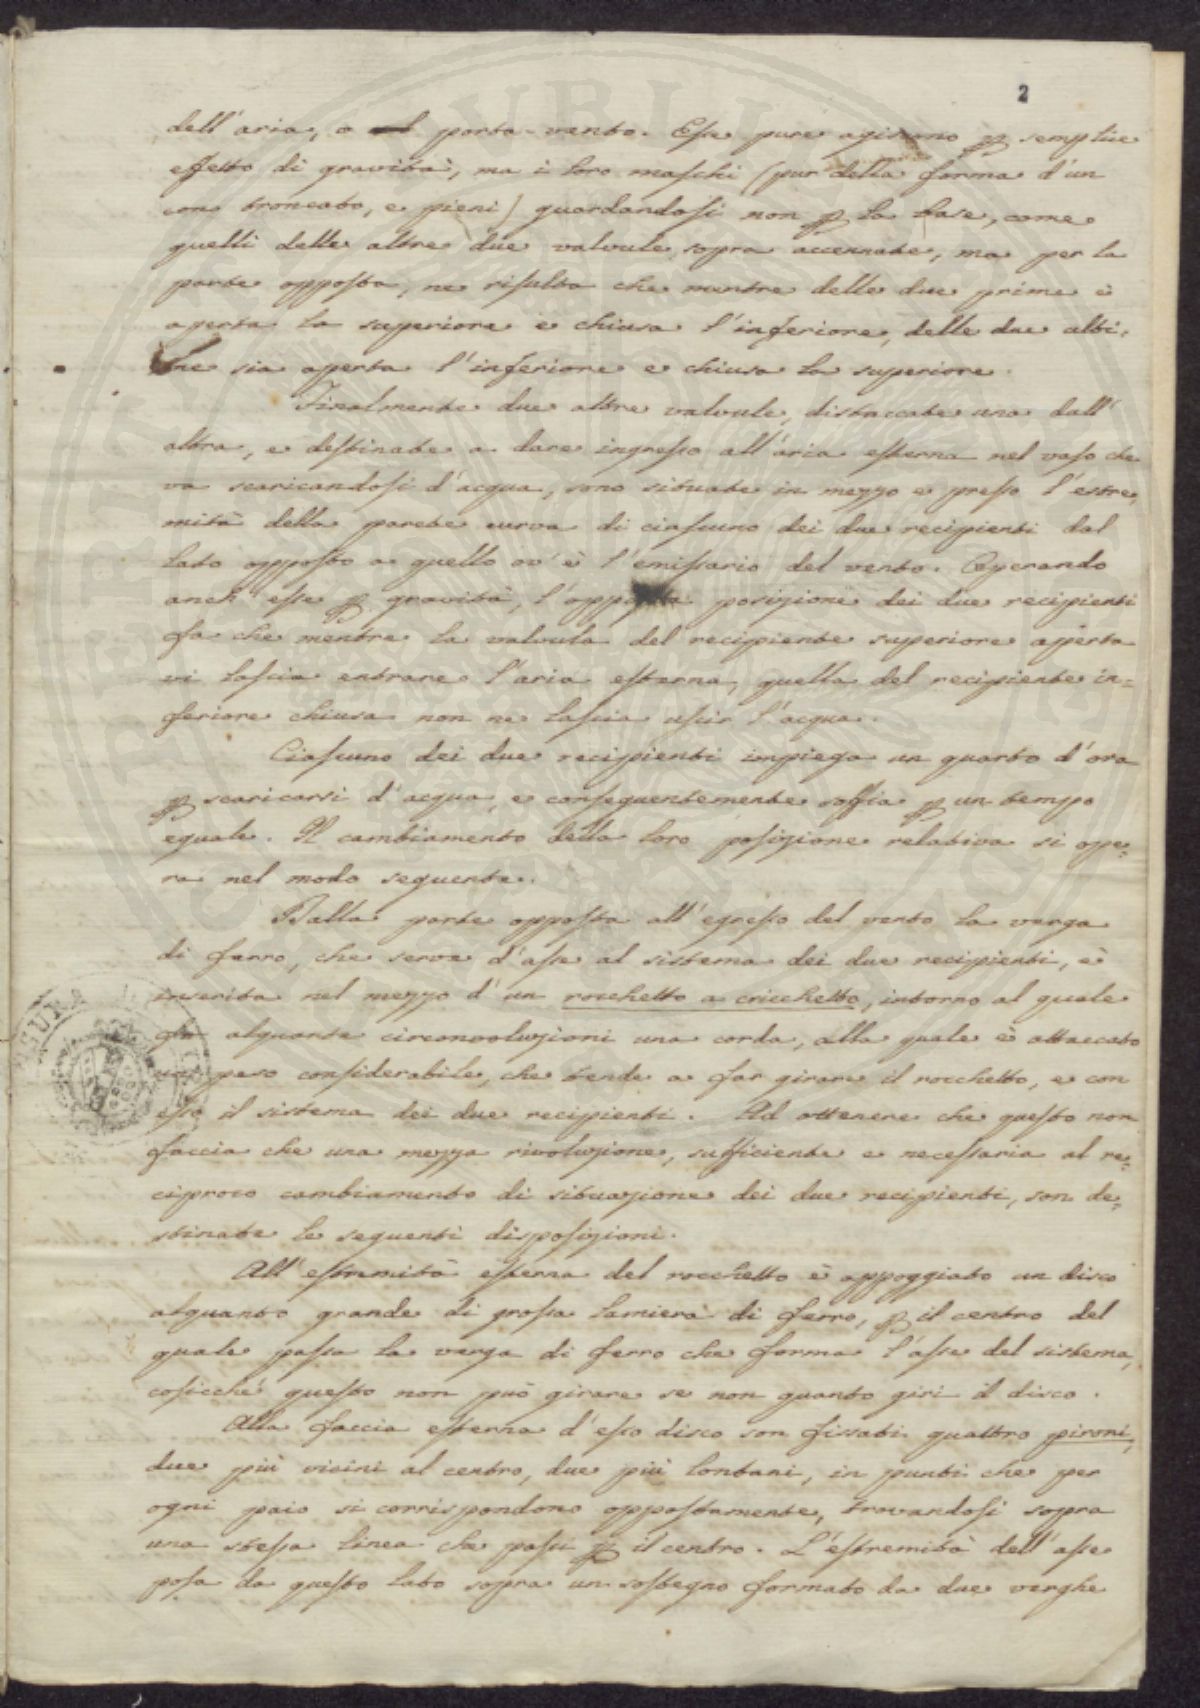 2
dell'aria, o al porta-vento. Esse pure agiscono p semplice
effetto di gravità, ma i loro maschi (pur della forma d'un
cono troncato, e pieni) guardandosi non p la base, come
quelli delle altre due valvule sopra accennate, ma per la
parte opposta, ne risulta che mentre delle due prime è
aperta la superiore e chiusa l'inferiore, delle due alti-
me sia aperta l'inferiore e chiusa la superiore.
Finalmente due altre valvule, distaccate una dall'
altra, e destinate a dare ingresso all'aria esterna nel vaso che
va scaricandosi d'acqua, sono situate in mezzo e presso l'estre-
mità della parete curva di ciascuno dei due recipienti dal
lato opposto a quello ov'è l'emissario del vento. Operando
anch'esse p gravità, l'opposta posizione dei due recipienti
fa che mentre la valvula del recipiente superiore aperta
vi lascia entrare l'aria esterna, quella del recipiente in=
feriore chiusa non ne lascia uscir l'acqua.
Ciascuno dei due recipienti impiega un quarto d'ora
p scaricarsi d'acqua, e conseguentemente soffia p un tempo
eguale. Il cambiamento della loro posizione relativa si ope=
ra nel modo seguente.
Dalla parte opposta all'egresso del vento la verga
di ferro, che serve d'asse al sistema dei due recipienti, è
inserita nel mezzo d'un rocchetto a cricchetto, intorno al quale
alquante circonvoluzioni una corda, alla quale è attaccato
un peso considerabile, che tende a far girare il rocchetto, e con
esso il sistema dei due recipienti. Ad ottenere che questo non
faccia che una mezza rivoluzione, sufficiente e necessaria al re=
ciproco cambiamento di situazione dei due recipienti, son de=
stinate le seguenti disposizioni.
All'estremità esterna del rocchetto è appoggiato un disco
alquanto grande di grossa lamiera di ferro, p il centro del
quale passa la verga di ferro che forma l'asse del sistema,
cosicché questo non può girare se non quanto giri il disco.
Alla faccia esterna d'esso disco son fissati quattro pironi,
due più vicini al centro, due più lontani, in punti che per
ogni paio si corrispondono oppostamente, trovandosi sopra
una stessa linea che passi p il centro. L'estremità dell'asse
posa da questo lato sopra un sostegno formato da due verghe